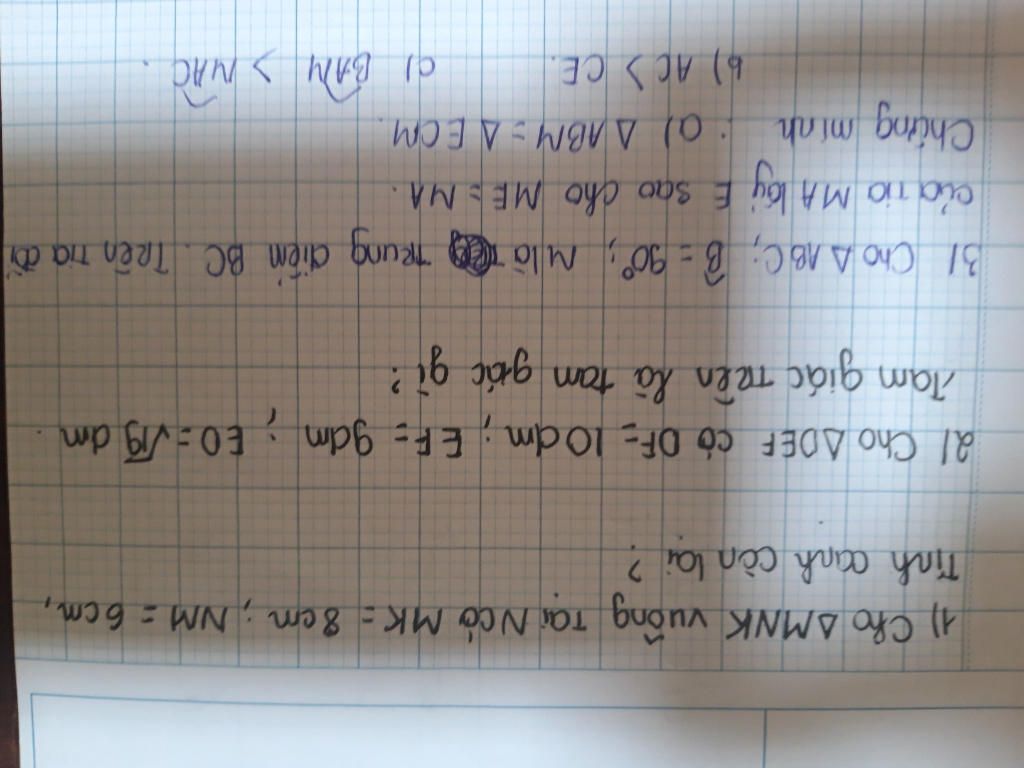 1) Cho ΔMNK vuông tại N có MK = 8cm ; NM = 6cm,
Tính cạnh còn lại ?
2) Cho ΔDEF có DF = 10dm ; EF = 9dm ; ED = √19 dm.
Tam giác trên là tam giác gì ?
3) Cho ΔABC, B̂ = 90°; M là trung điểm BC. Trên tia đối
của tia MA lấy E sao cho ME = MA.
Chứng minh : a) ΔABM = ΔECM.
b) AC > CE. c) B̂AM > M̂AC.